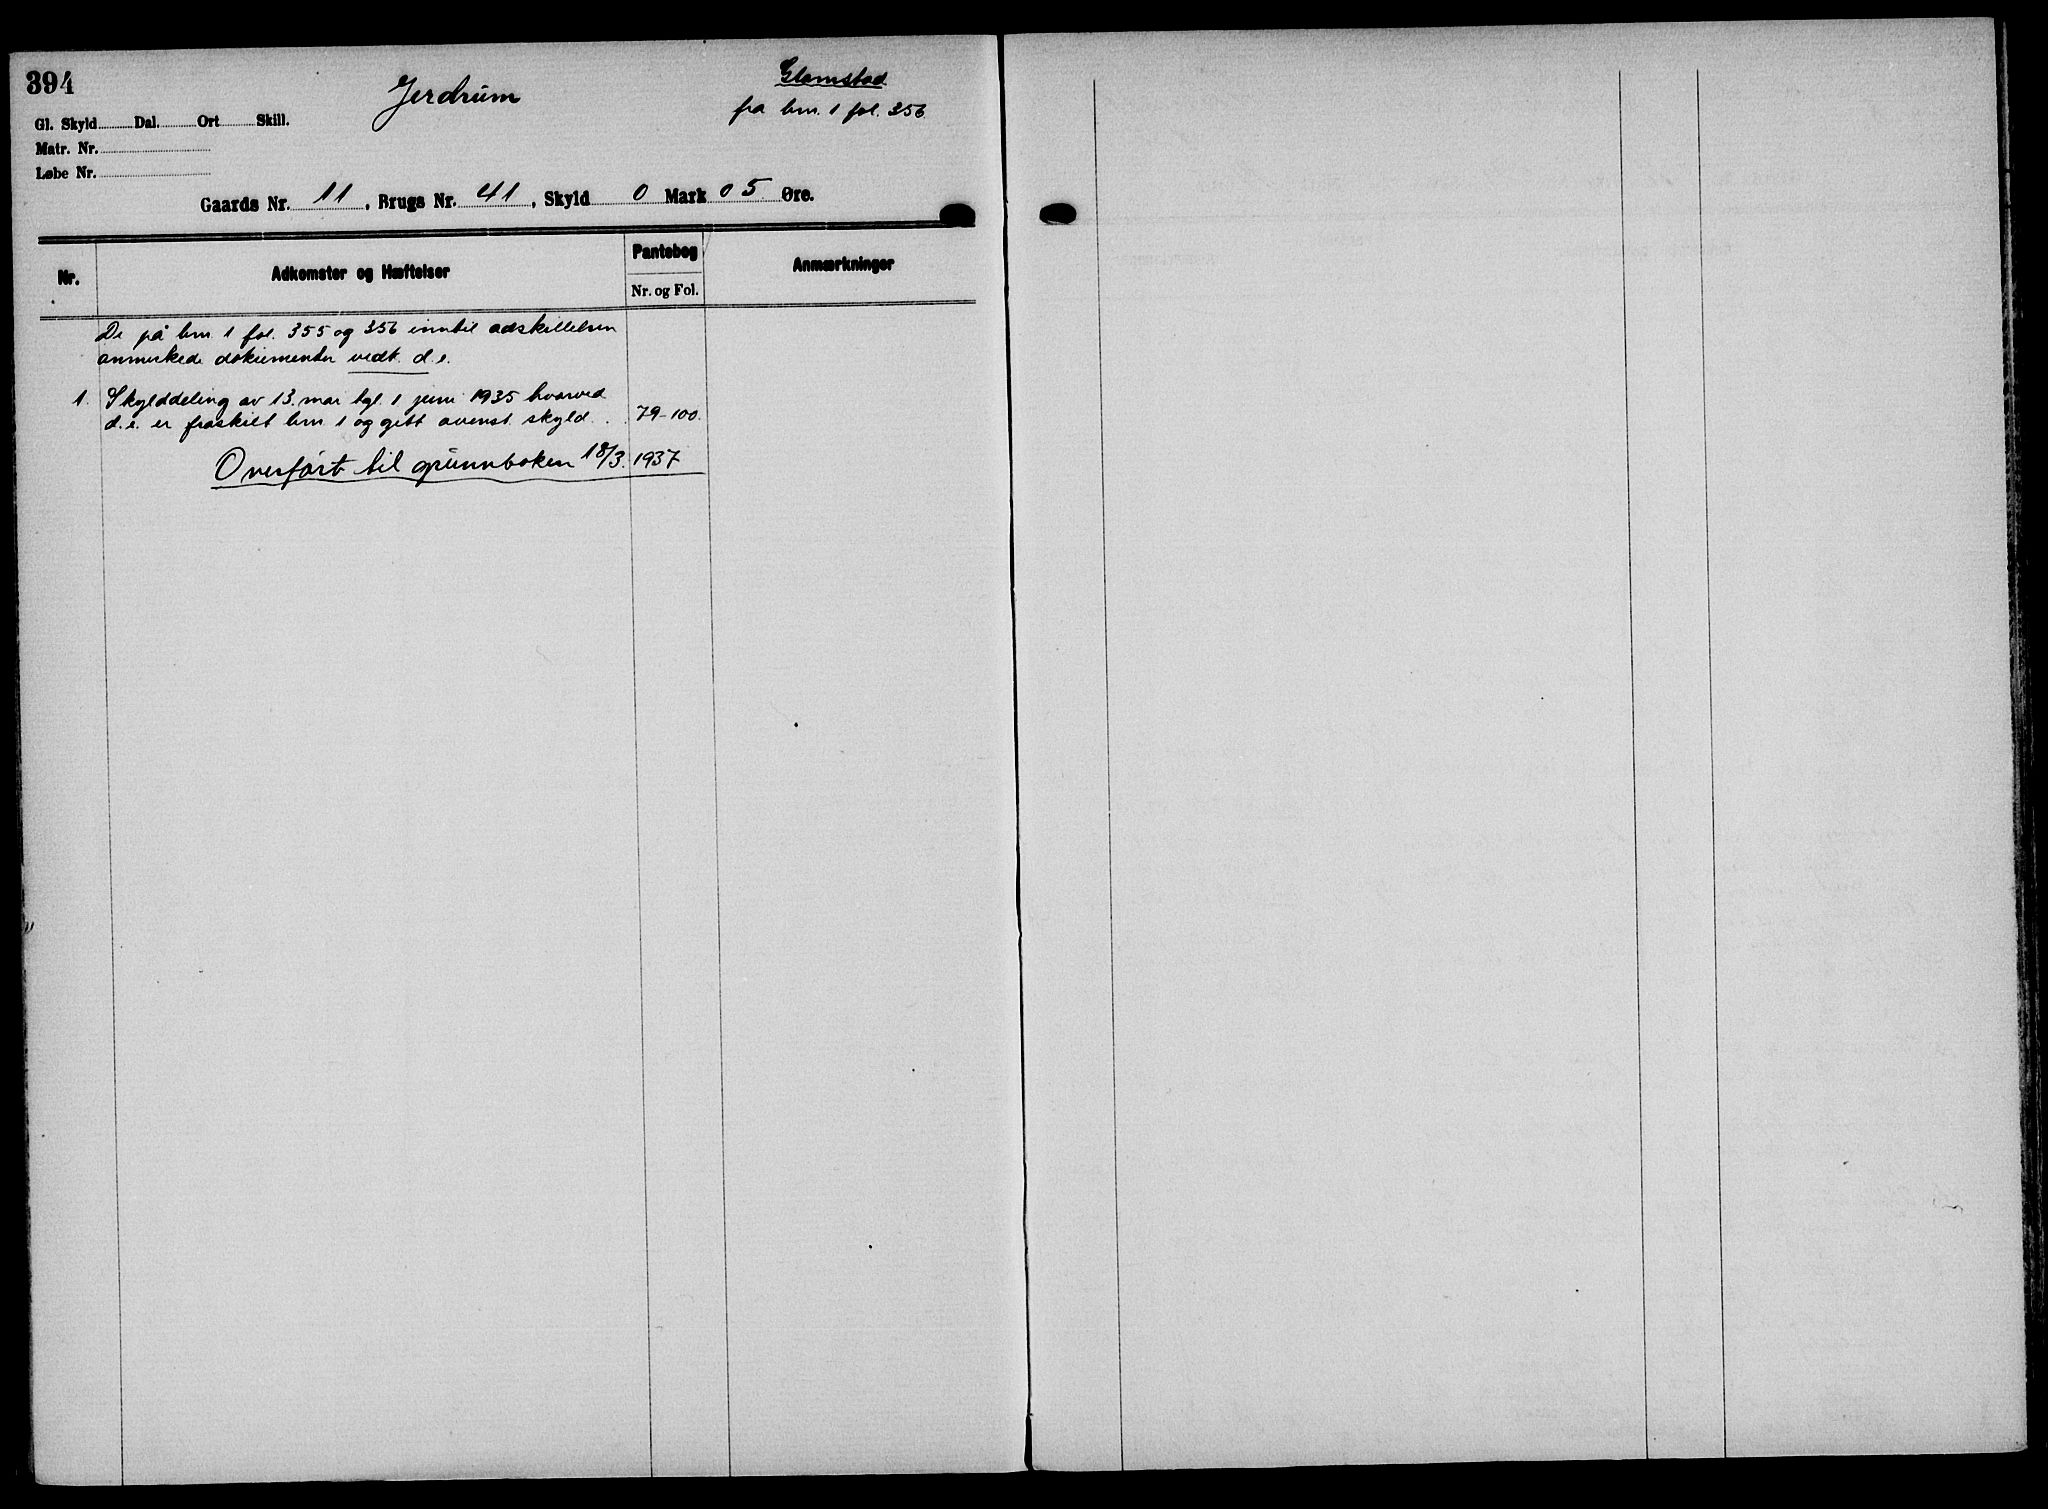 394
Jerdrum
Glomstad
fra brn. 1 fol. 356
Gl. Skyld Dal. Ort Skill.
Matr. Nr.
Løbe Nr.
Gaards Nr. 11, Brugs Nr. 41, Skyld 0 Mark 05 Øre.
Nr.
Adkomster og Hæftelser
Pantebog
Nr. og Fol.
Anmærkninger
De på brn. 1 fol. 355 og 356 inntil adskillelsen
anmerkede dokumenter vedk. d.e.
1. Skylddeling av 13. mai tgl. 1 juni 1935 hvorved
d.e. er fraskilt brn 1 og gitt ovenst. skyld . . 79-100.
Overført til grunnboken 18/3. 1937